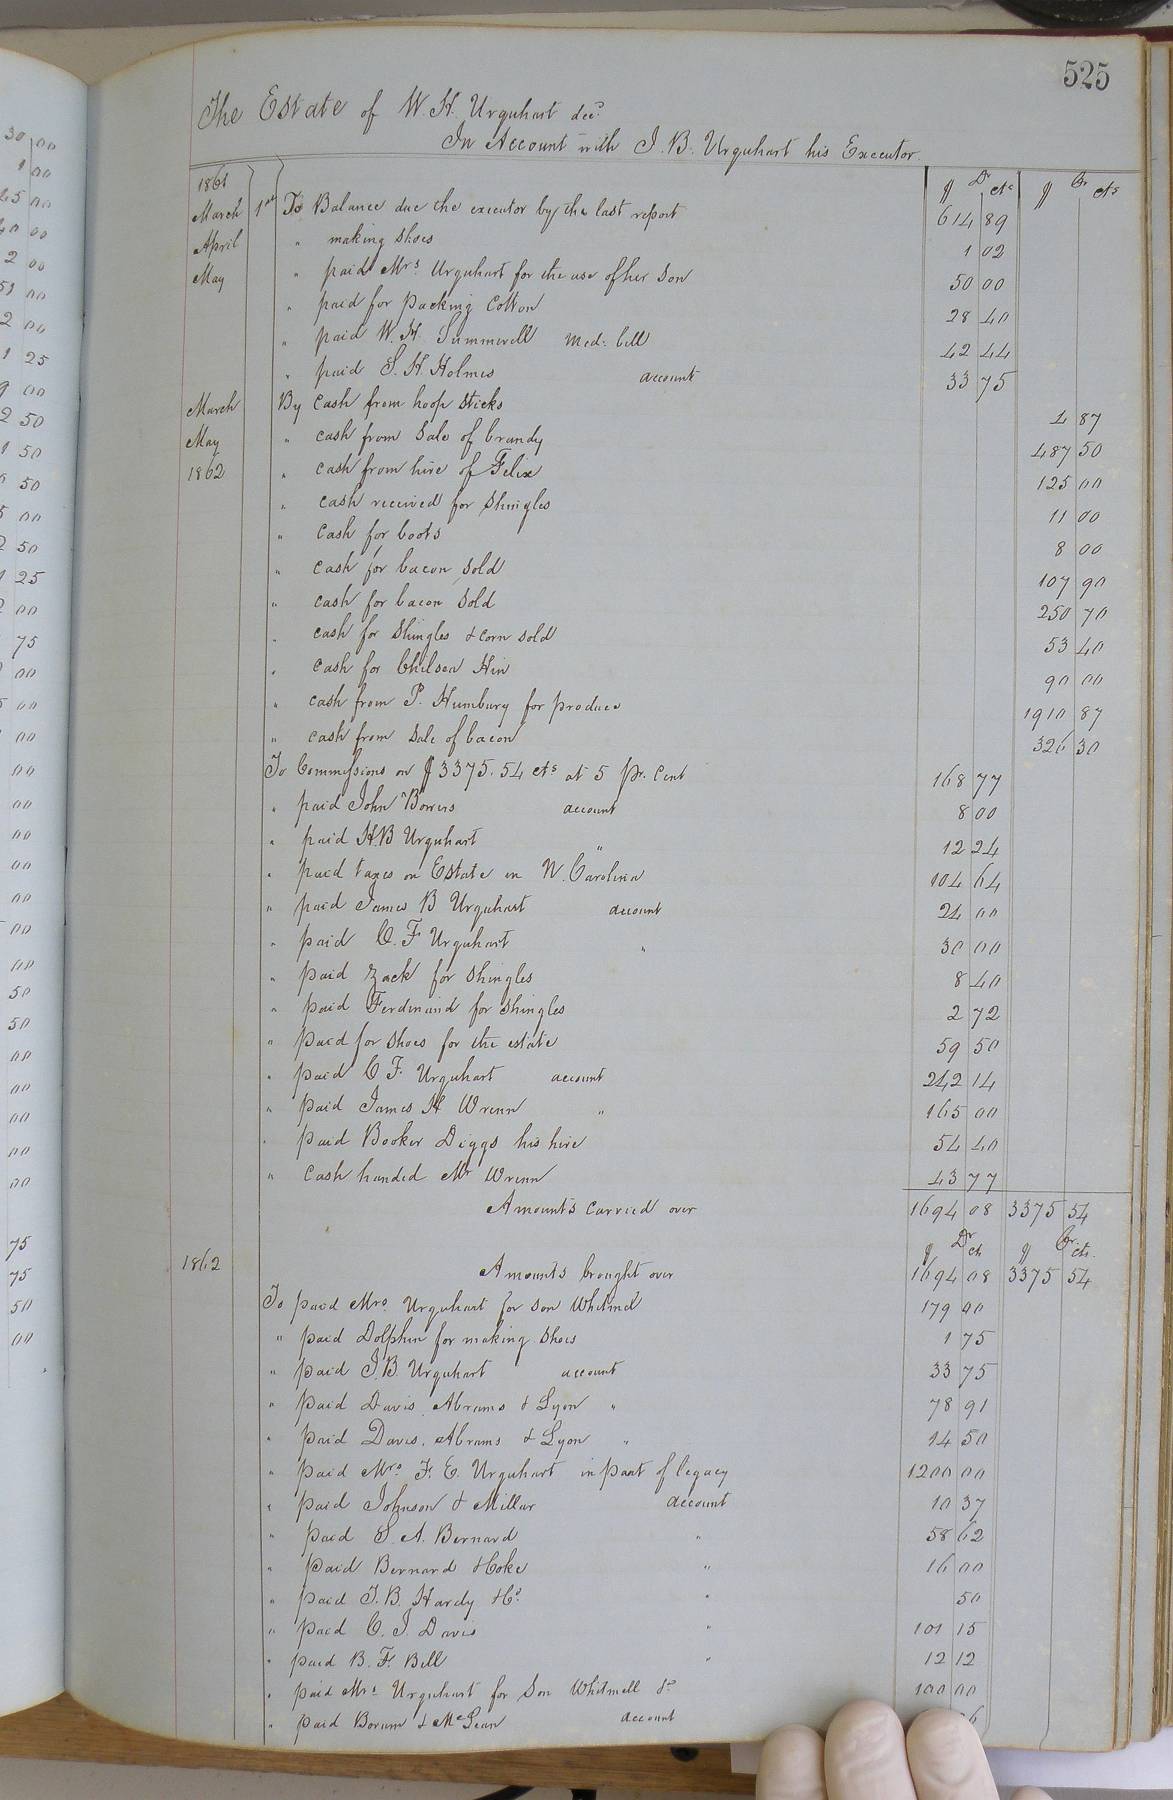 525
The Estate of W. H. Urquhart dec.d
In Account with J. B. Urquhart his Executor.
1861 $ Dr cts $ Cr cts
March 1st To Balance due the executor by the last report 614 89
April " making shoes 1 02
May " paid Mrs Urquhart for the use of her son 50 00
" paid for packing Cotton 28 40
" paid W. H. Summerell Med: bill 42 44
" paid S. H. Holmes account 33 75
March By Cash from hoop sticks 4 87
May " cash from sale of brandy 487 50
1862 " cash from hire of Felix 125 00
" cash received for shingles 11 00
" cash for boots 8 00
" cash for bacon sold 107 90
" cash for bacon sold 250 70
" cash for shingles & corn sold 53 40
" cash for Chilsea Hire 90 00
" cash from P. Humbury for produce 1910 87
" cash from sale of bacon 326 30
To Commissions on $3375.54 cts at 5 Pr. Cent 168 77
" paid John Bowers account 8 00
" paid H.B Urquhart " 12 24
" paid taxes on Estate in N. Carolina 104 64
" paid James B Urquhart account 24 00
" paid C. F Urquhart " 30 00
" paid Zack for shingles 8 40
" paid Ferdinand for shingles 2 72
" paid for shoes for the estate 59 50
" paid C F. Urquhart account 242 14
" paid James H Wrenn " 165 00
" paid Booker Diggs his hire 54 40
" cash handed Mr Wrenn 43 77
Amounts carried over 1694 08 3375 54
$ Dr ct $ Cr. cts.
1862 Amounts brought over 1694 08 3375 54
To paid Mrs. Urquhart for son Whitmel 179 00
" paid Dolphin for making shoes 1 75
" paid J.B. Urquhart account 33 75
" paid Davis, Abrams & Lyon " 78 91
" paid Davis, Abrams & Lyon " 14 50
" paid Mrs. F. E. Urquhart in part of legacy 1200 00
" paid Johnson & Millar account 10 37
" paid S. A. Bernard " 58 62
" paid Bernard & Coke " 16 00
" paid T. B. Hardy & Co. " 50
" paid C. J. Davis " 101 15
" paid B. F. Bell " 12 12
" paid Mrs Urquhart for Son Whitmell 100 00
" paid Borum & McLean account